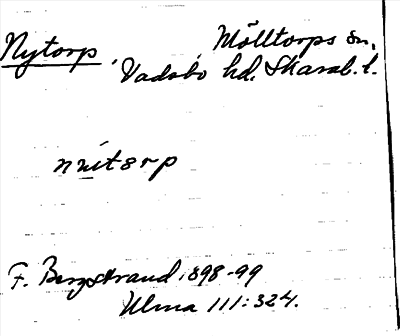 Nytorp, Mölltorps sn,
Vadsbo hd, Skarab. l.
nnitorp
F. Bergstrand 1898-99
Ulma 111:324.